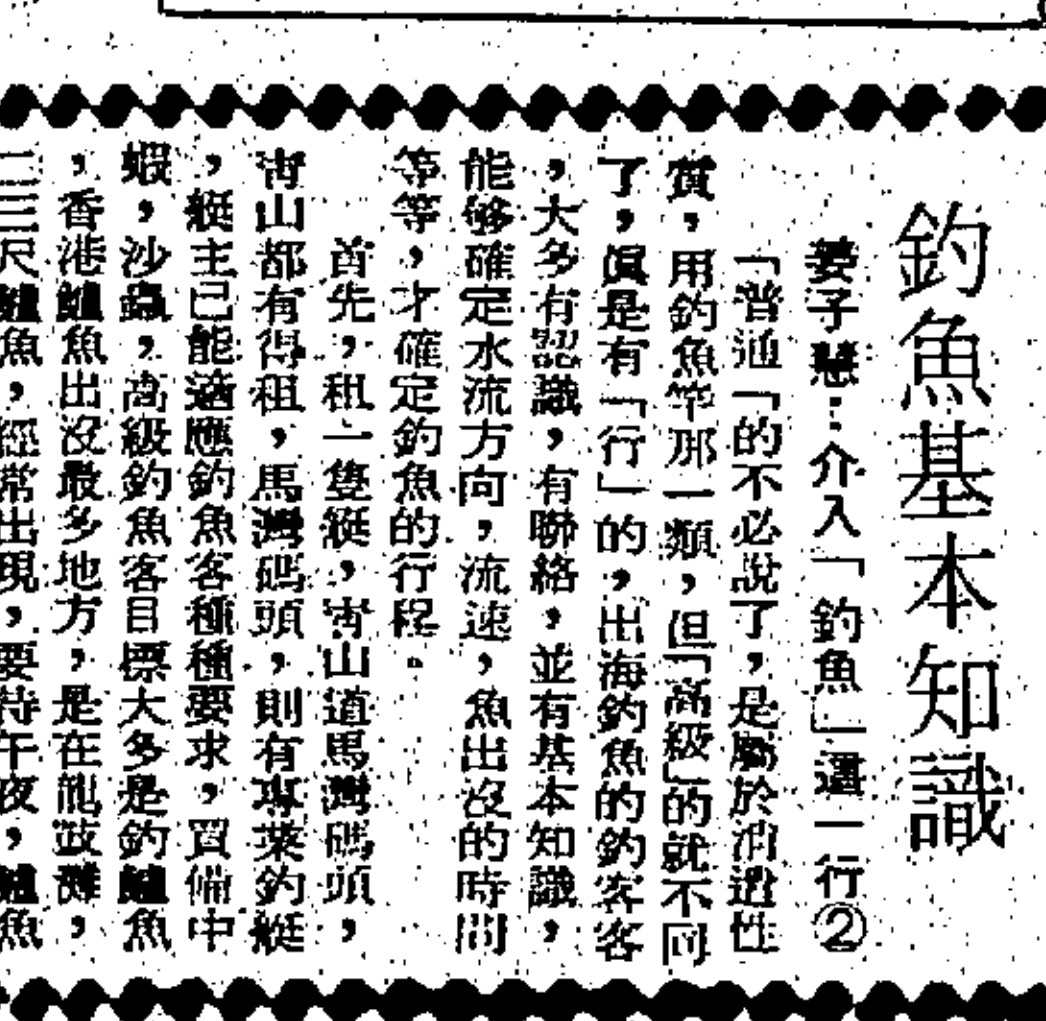 釣魚基本知識
姜子慧：介入「釣魚」這一行②
「普通「的不必說了，是屬於消遣性
質，用釣魚竿那一類，但「高級」的就不同
了，眞是有「行」的，出海釣魚的釣客客
，大多有認識，有聯絡，並有基本知識，
能够確定水流方向，流速，魚出沒的時間
等等，才確定釣魚的行程。
首先，租一隻艇，靑山道馬灣碼頭，
靑山都有得租，馬灣碼頭，則有專業釣艇
，艇主已能適應釣魚客種種要求，買備中
蝦，沙蟲，高級釣魚客目標大多是釣鱸魚
，香港鱸魚出沒最多地方，是在龍鼓灘，
二三尺鱸魚，經常出現，要待午夜，鱸魚